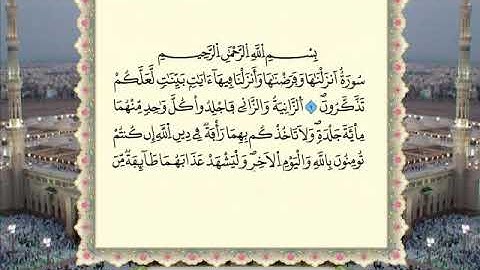 بِسْمِ اللَّهِ الرَّحْمَٰنِ الرَّحِيمِ
سُورَةٌ أَنزَلْنَٰهَا وَفَرَضْنَٰهَا وَأَنزَلْنَا فِيهَا ءَايَٰتٍۭ بَيِّنَٰتٍ لَّعَلَّكُمْ
تَذَكَّرُونَ ١ ٱلزَّانِيَةُ وَٱلزَّانِي فَٱجْلِدُوا۟ كُلَّ وَٰحِدٍ مِّنْهُمَا
مِا۟ئَةَ جَلْدَةٍ وَلَا تَأْخُذْكُم بِهِمَا رَأْفَةٌ فِي دِينِ ٱللَّهِ إِن كُنتُمْ
تُؤْمِنُونَ بِٱللَّهِ وَٱلْيَوْمِ ٱلْءَاخِرِ وَلْيَشْهَدْ عَذَابَهُمَا طَآئِفَةٌ مِّنَ